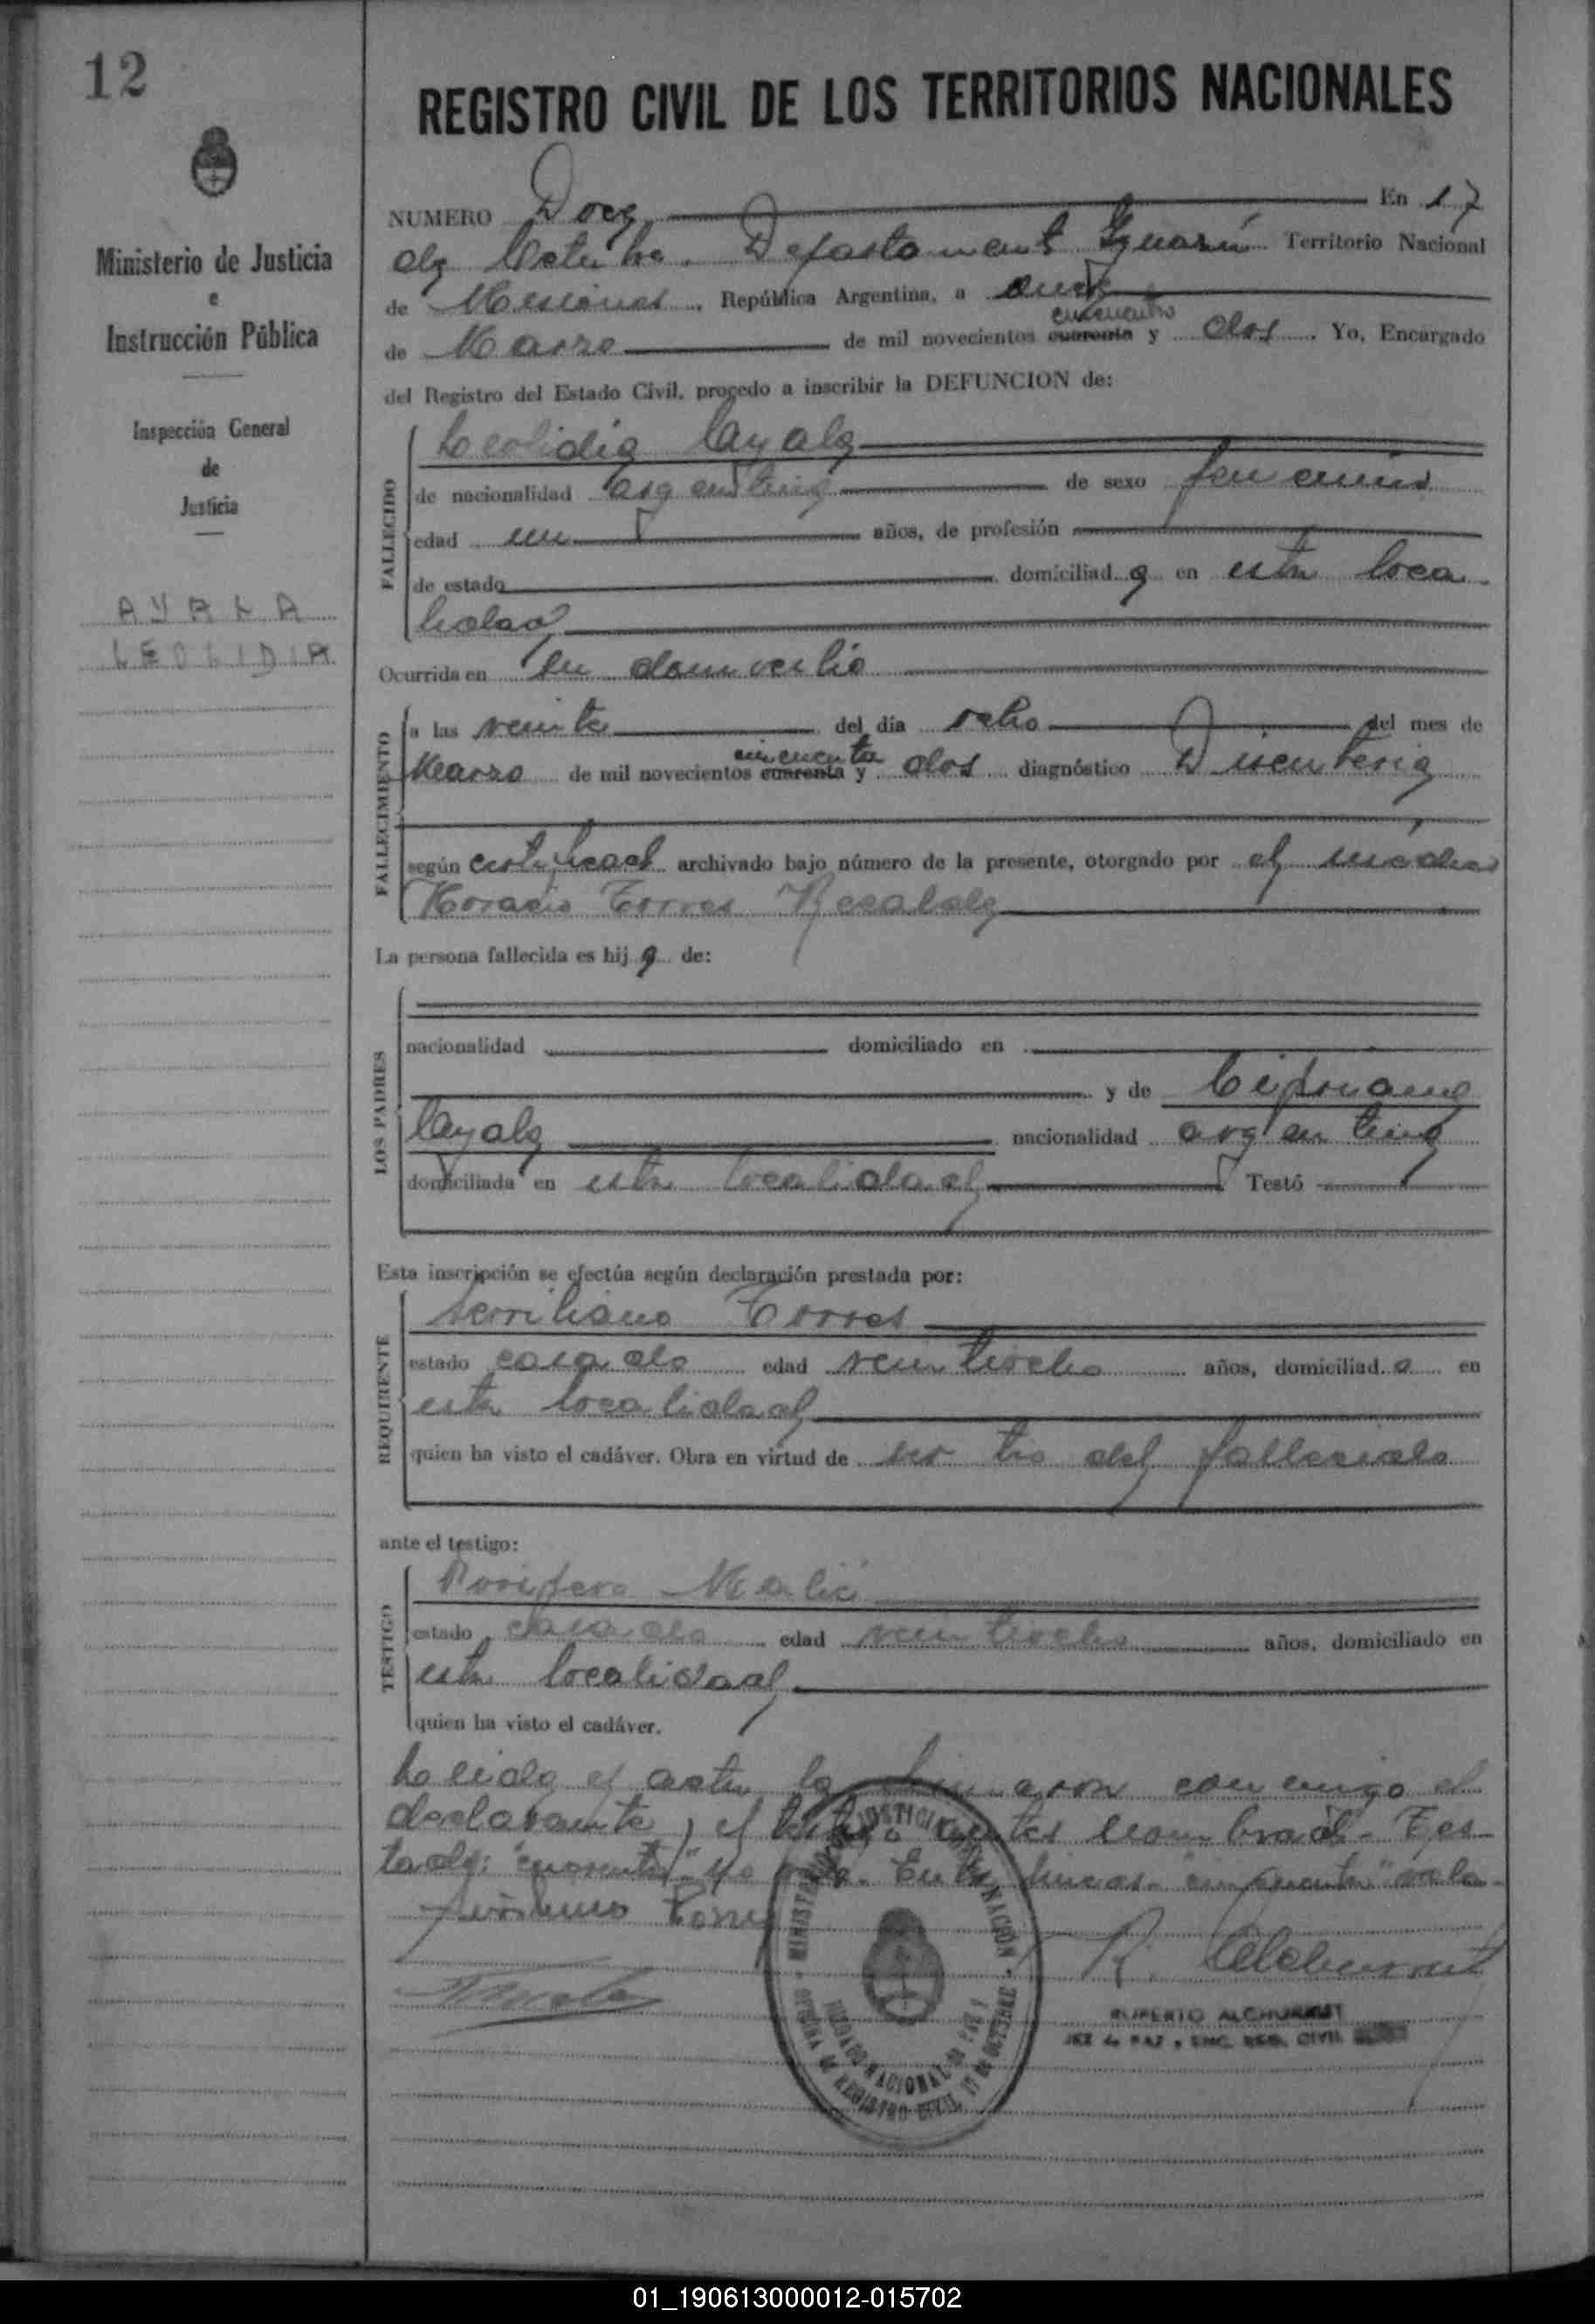 12
REGISTRO CIVIL DE LOS TERRITORIOS NACIONALES
Ministerio de Justicia
e
Instrucción Pública
Inspección General
de
Justicia
AYALA
LEOLIDIA
NUMERO Doce En 17
de Octubre. Departament Iguazú Territorio Nacional
de Misiones, República Argentina, a once
cincuenta
de Marzo de mil novecientos cuarenta y dos. Yo, Encargado
del Registro del Estado Civil, procedo a inscribir la DEFUNCION de:
FALLECIDO
Leolidia Ayala
de nacionalidad argentina de sexo femenino
edad un años, de profesión
de estado domiciliada en esta loca
lidad
Ocurrida en su domicilio
FALLECIMIENTO
a las veinte del día ocho del mes de
cincuenta
Marzo de mil novecientos cuarenta y dos diagnóstico Disenteria
según certificad archivado bajo número de la presente, otorgado por el medico
Horacio Torres
La persona fallecida es hija de:
LOS PADRES
nacionalidad domiciliado en
y de Cipriana
Ayala nacionalidad argentina
domiciliada en esta localidad Testó
Esta inscripción se efectúa según declaración prestada por:
REQUIRENTE
Torres
estado casado edad veintiocho años, domiciliado en
esta localidad
quien ha visto el cadáver. Obra en virtud de ser tio del fallecido
ante el testigo:
TESTIGO
estado casado edad veintiocho años, domiciliado en
esta localidad
quien ha visto el cadáver.
Leida el acta la firmaron conmigo el
declarante y el testigo antes nombrad. Tes-
tado: "cuarenta" No vale. Entre lineas "cincuenta" vale.
Torres
R. Alchurrut
RUPERTO ALCHURRUT
JUEZ de PAZ y ENC. REG. CIVIL
MINISTERIO DE JUSTICIA DE LA NACIÓN
JUZGADO NACIONAL DE PAZ Y
OFICINA DE REGISTRO CIVIL 17 DE OCTUBRE
01_190613000012-015702